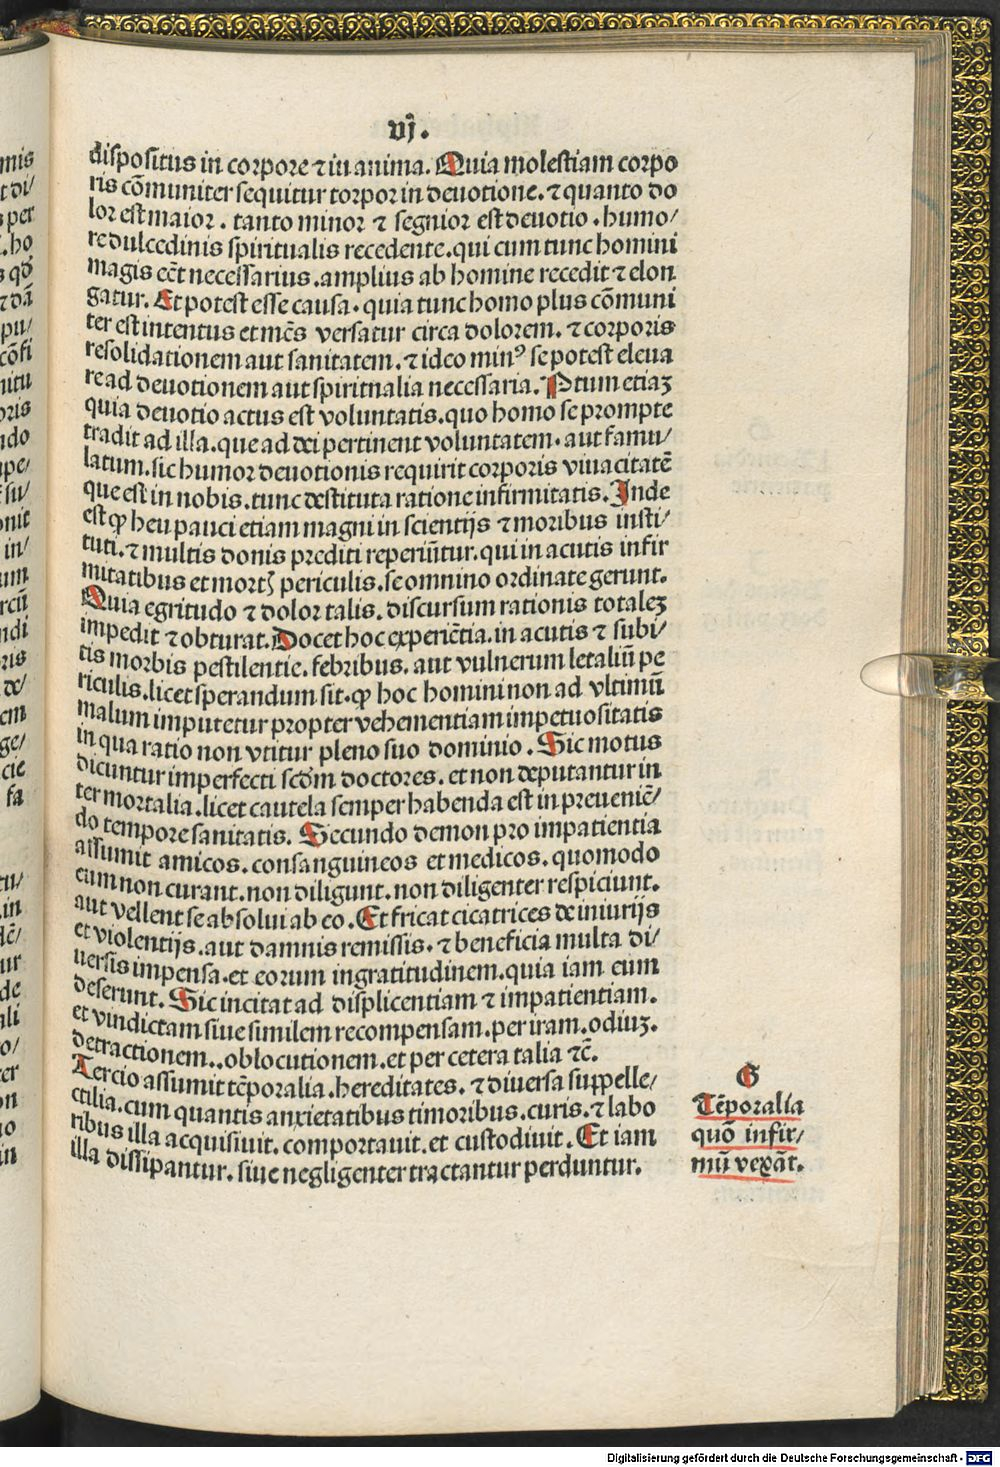 vj.
dispositus in corpore ⁊ in anima. Quia molestiam corpo
ris cõmuniter sequitur torpor in deuotione. ⁊ quanto do
lor est maior. tanto minor ⁊ segnior est deuotio. humo/
re dulcedinis spiritualis recedente. qui cum tunc homini
magis eēt necessarius. amplius ab homine recedit ⁊ elon
gatur. Et potest esse causa. quia tunc homo plus cõmuni
ter est intentus et mēs versatur circa dolorem. ⁊ corporis
resolidationem aut sanitatem. ⁊ ideo minꝰ se potest eleua
re ad deuotionem aut spiritualia necessaria. Ptum etiaꝫ
quia deuotio actus est voluntatis. quo homo se prompte
tradit ad illa. que ad dei pertinent voluntatem. aut famu/
latum. sic humor deuotionis requirit corporis viuacitatē
que est in nobis. tunc destituta ratione infirmitatis. Inde
est ꝙ heu pauci etiam magni in scientijs ⁊ moribus insti/
tuti. ⁊ multis donis prediti reperiūtur. qui in acutis infir
mitatibus et mortꝭ periculis. se omnino ordinate gerunt.
Quia egritudo ⁊ dolor talis. discursum rationis totaleꝫ
impedit ⁊ obturat. Docet hoc experiētia. in acutis ⁊ subi/
tis morbis pestilentie. febribus. aut vulnerum letaliū pe
riculis. licet sperandum sit. ꝙ hoc homini non ad vltimū
malum imputetur propter vehementiam impetuositatis
in qua ratio non vtitur pleno suo dominio. Sic motus
dicuntur imperfecti scďm doctores. et non deputantur in
ter mortalia. licet cautela semper habenda est in preueniē/
do tempore sanitatis. Secundo demon pro impatientia
assumit amicos. consanguineos et medicos. quomodo
eum non curant. non diligunt. non diligenter respiciunt.
aut vellent se absolui ab eo. Et fricat cicatrices de iniurijs
et violentijs. aut damnis remissis. ⁊ beneficia multa di/
uersis impensa. et eorum ingratitudinem. quia iam eum
deserunt. Sic incitat ad displicentiam ⁊ impatientiam.
et vindictam siue similem recompensam. per iram. odiuꝫ.
detractionem.. oblocutionem. et per cetera talia ⁊c̄.
Tercio assumit tēporalia. hereditates. ⁊ diuersa suppelle/
ctilia. cum quantis anxietatibus timoribus. curis. ⁊ labo
ribus illa acquisiuit. comportauit. et custodiuit. Et iam
illa dissipantur. siue negligenter tractantur perduntur.
G
Tēporalia
quō infir/
mū vexāt.
Digitalisierung gefördert durch die Deutsche Forschungsgemeinschaft - DFG